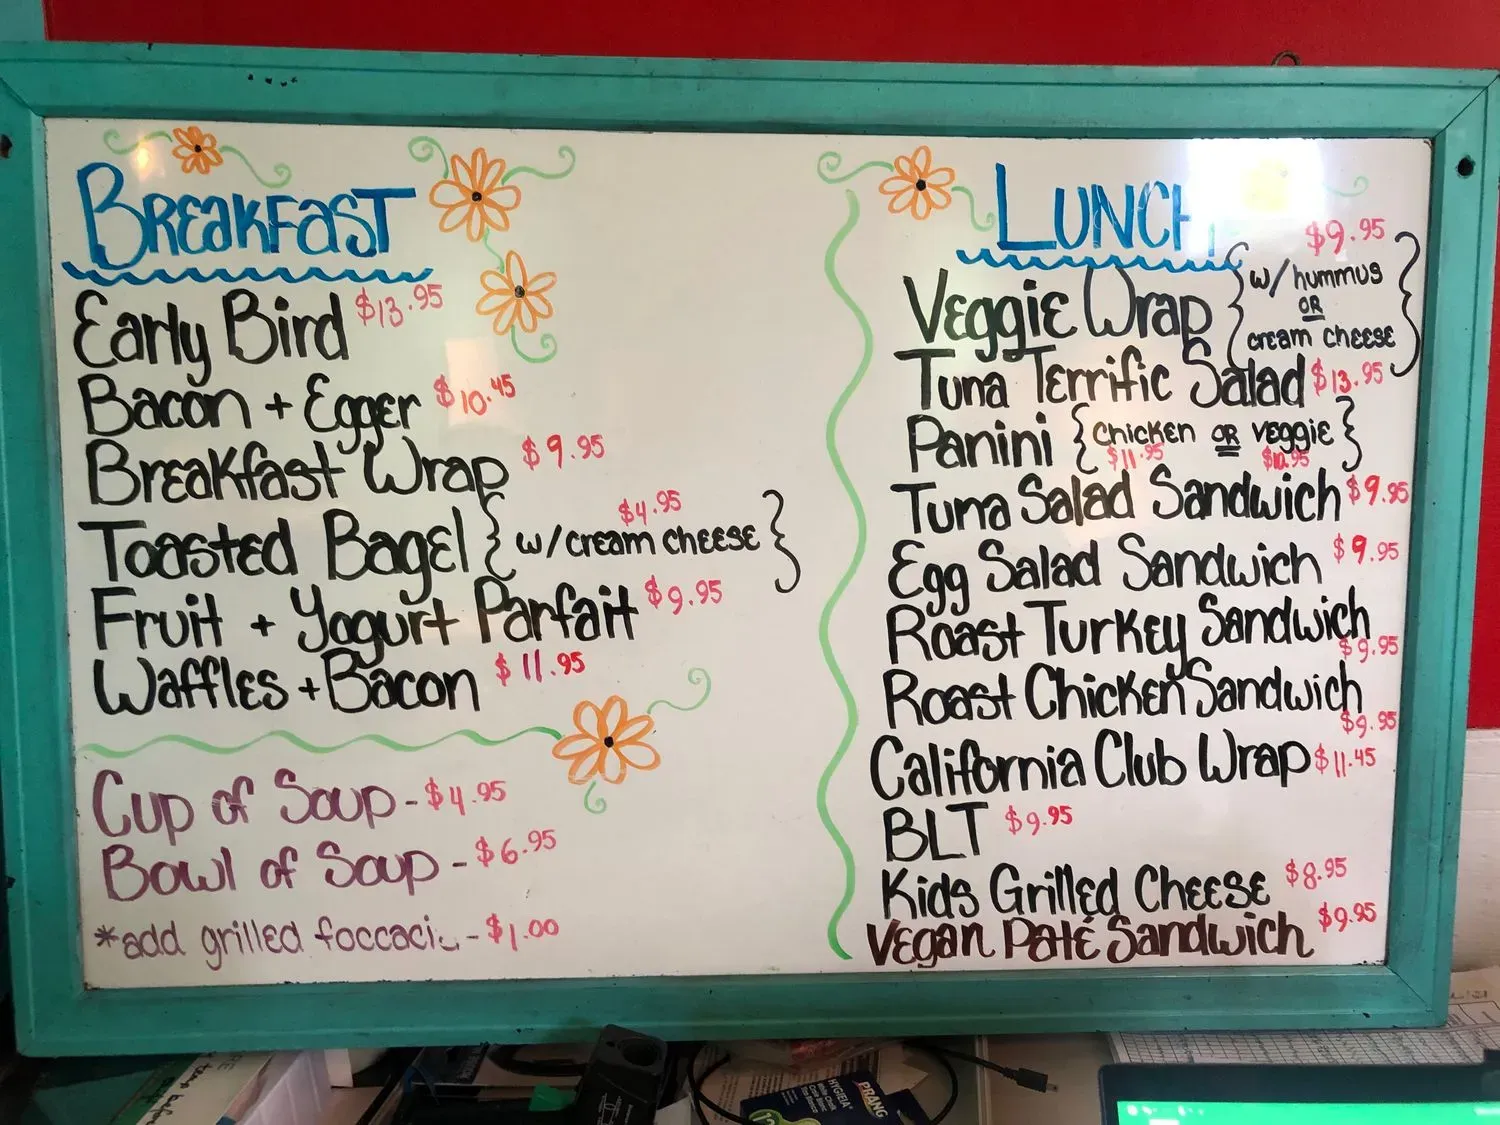 BREAKFAST
Early Bird $13.95
Bacon + Egger $10.45
Breakfast Wrap $9.95
Toasted Bagel { w/cream cheese } $4.95
Fruit + Yogurt Parfait $9.95
Waffles + Bacon $11.95
Cup of Soup - $4.95
Bowl of Soup - $6.95
*add grilled foccaci - $1.00
LUNCH
$9.95
Veggie Wrap { w/ hummus
OR
cream cheese }
Tuna Terrific Salad $13.95
Panini { chicken OR veggie }
$11.95 $10.95
Tuna Salad Sandwich $9.95
Egg Salad Sandwich $9.95
Roast Turkey Sandwich
$9.95
Roast Chicken Sandwich
$9.95
California Club Wrap $11.45
BLT $9.95
Kids Grilled Cheese $8.95
Vegan Paté Sandwich $9.95
HYGIEIA
PRANG